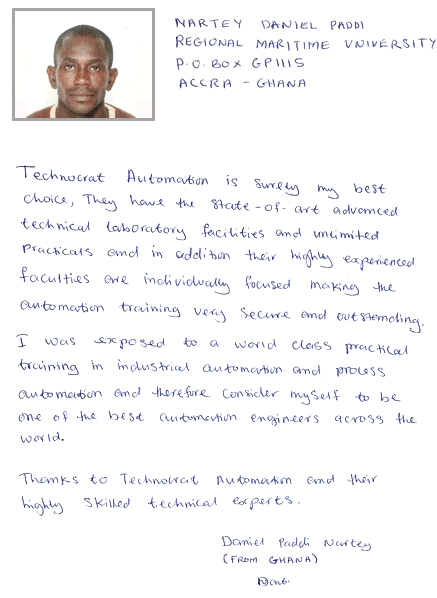 NARTEY DANIEL PADDI
REGIONAL MARITIME UNIVERSITY
P.O. BOX GP1115
ACCRA - GHANA
Technocrat Automation is surely my best
choice, They have the state-of-art advanced
technical laboratory facilities and unlimited
practicals and in addition their highly experienced
faculties are individually focused making the
automation training very secure and outstanding.
I was exposed to a world class practical
training in industrial automation and process
automation and therefore consider myself to be
one of the best automation engineers across the
world.
Thanks to Technocrat Automation and their
highly skilled technical experts.
Daniel Paddi Nartey
(FROM GHANA)